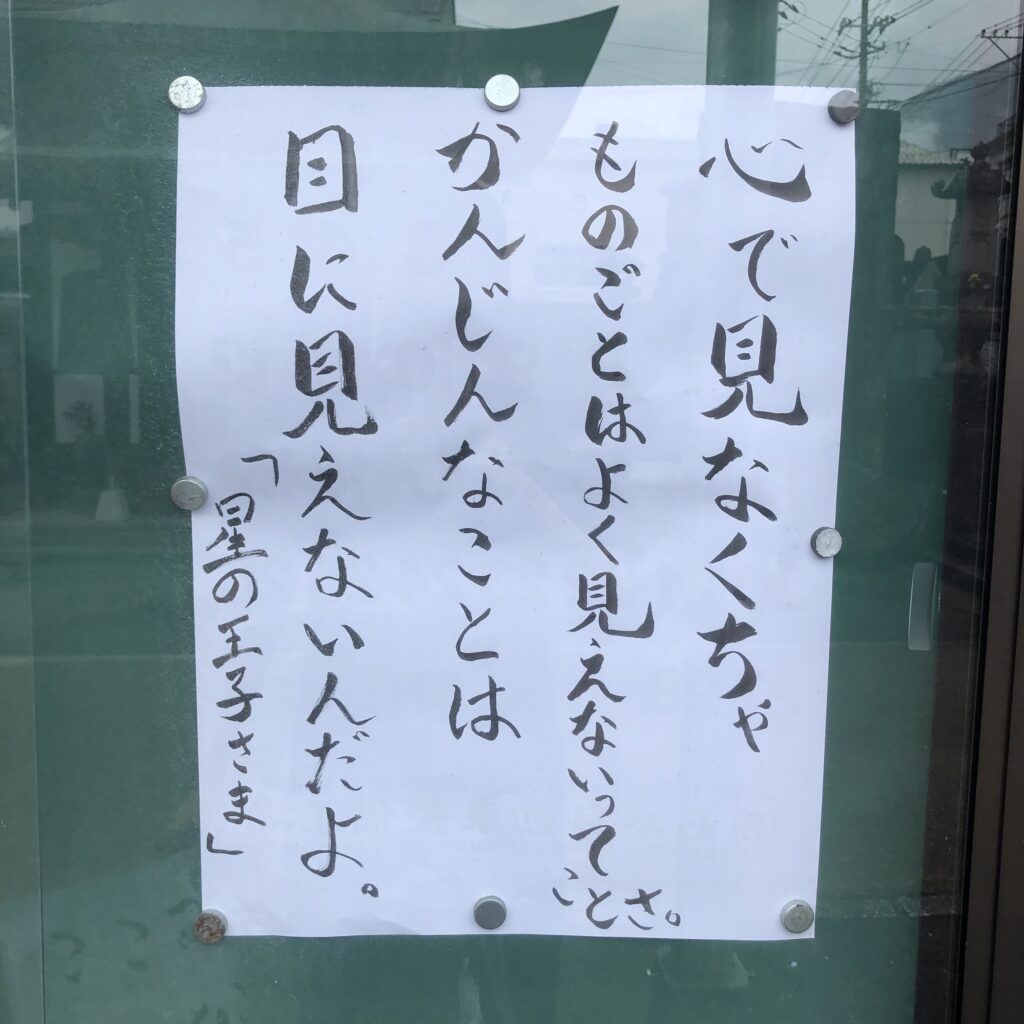 心で見なくちゃ
ものごとはよく見えないって
ことさ。
かんじんなことは
目に見えないんだよ。
「星の王子さま」